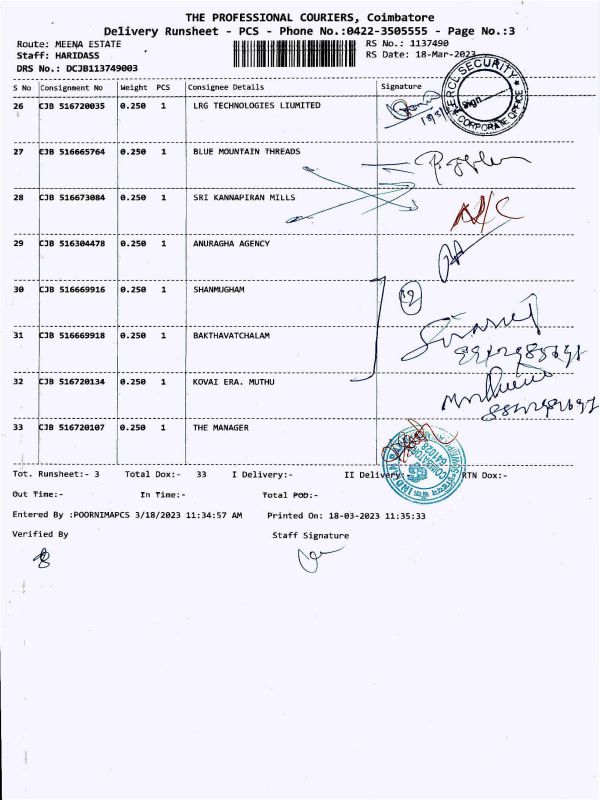 THE PROFESSIONAL COURIERS, Coimbatore
Delivery Runsheet - PCS - Phone No.:0422-3505555 - Page No.:3
Route: MEENA ESTATE RS No.: 1137490
Staff: HARIDASS RS Date: 18-Mar-2023
DRS No.: DCJB113749003
S No Consignment No Weight PCS Consignee Details Signature
26 CJB 516720035 0.250 1 LRG TECHNOLOGIES LIUMITED
SECURITY
CORPORATE OFFICE
27 CJB 516665764 0.250 1 BLUE MOUNTAIN THREADS
28 CJB 516673084 0.250 1 SRI KANNAPIRAN MILLS
29 CJB 516304478 0.250 1 ANURAGHA AGENCY
30 CJB 516669916 0.250 1 SHANMUGHAM
31 CJB 516669918 0.250 1 BAKTHAVATCHALAM
32 CJB 516720134 0.250 1 KOVAI ERA. MUTHU
33 CJB 516720107 0.250 1 THE MANAGER
641028
Tot. Runsheet:- 3 Total Dox:- 33 I Delivery:- II Delivery:- RTN Dox:-
Out Time:- In Time:- Total POD:-
Entered By :POORNIMAPCS 3/18/2023 11:34:57 AM Printed On: 18-03-2023 11:35:33
Verified By Staff Signature